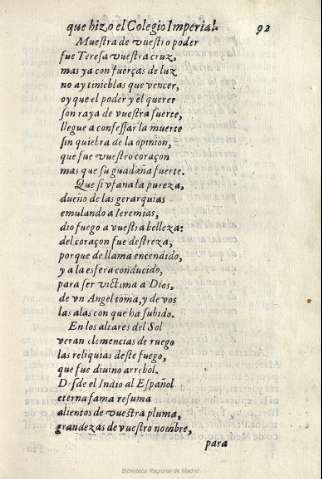 que hizo el Colegio Imperial. 92
Muestra de vuestro poder
fue Teresa vuestra cruz,
mas ya con fuerças de luz
no ay tinieblas que vencer,
oy que el poder y el querer
son raya de vuestra suerte,
llegue a confessar la muerte
sin quiebra de la opinion,
que fue vuestro coraçon
mas que su guadaña fuerte.
Que si vfana la pureza,
dueño de las gerarquias
emulando a Ieremias,
dio fuego a vuestra belleza:
del coraçon fue destreza,
porque de llama encenàido,
y a la esfera conducido,
para ser victima a Dios,
de vn Angel toma, y de vos
las alas con que ha subido.
En los altares del Sol
veran clemencias de ruego
las reliquias deste fuego,
que fue diuino arrebol.
Desde el Indio al Español
eterna fama resuma
alientos de vuestra pluma,
grandezas de vuestro nombre,
para
Biblioteca Regional de Madrid